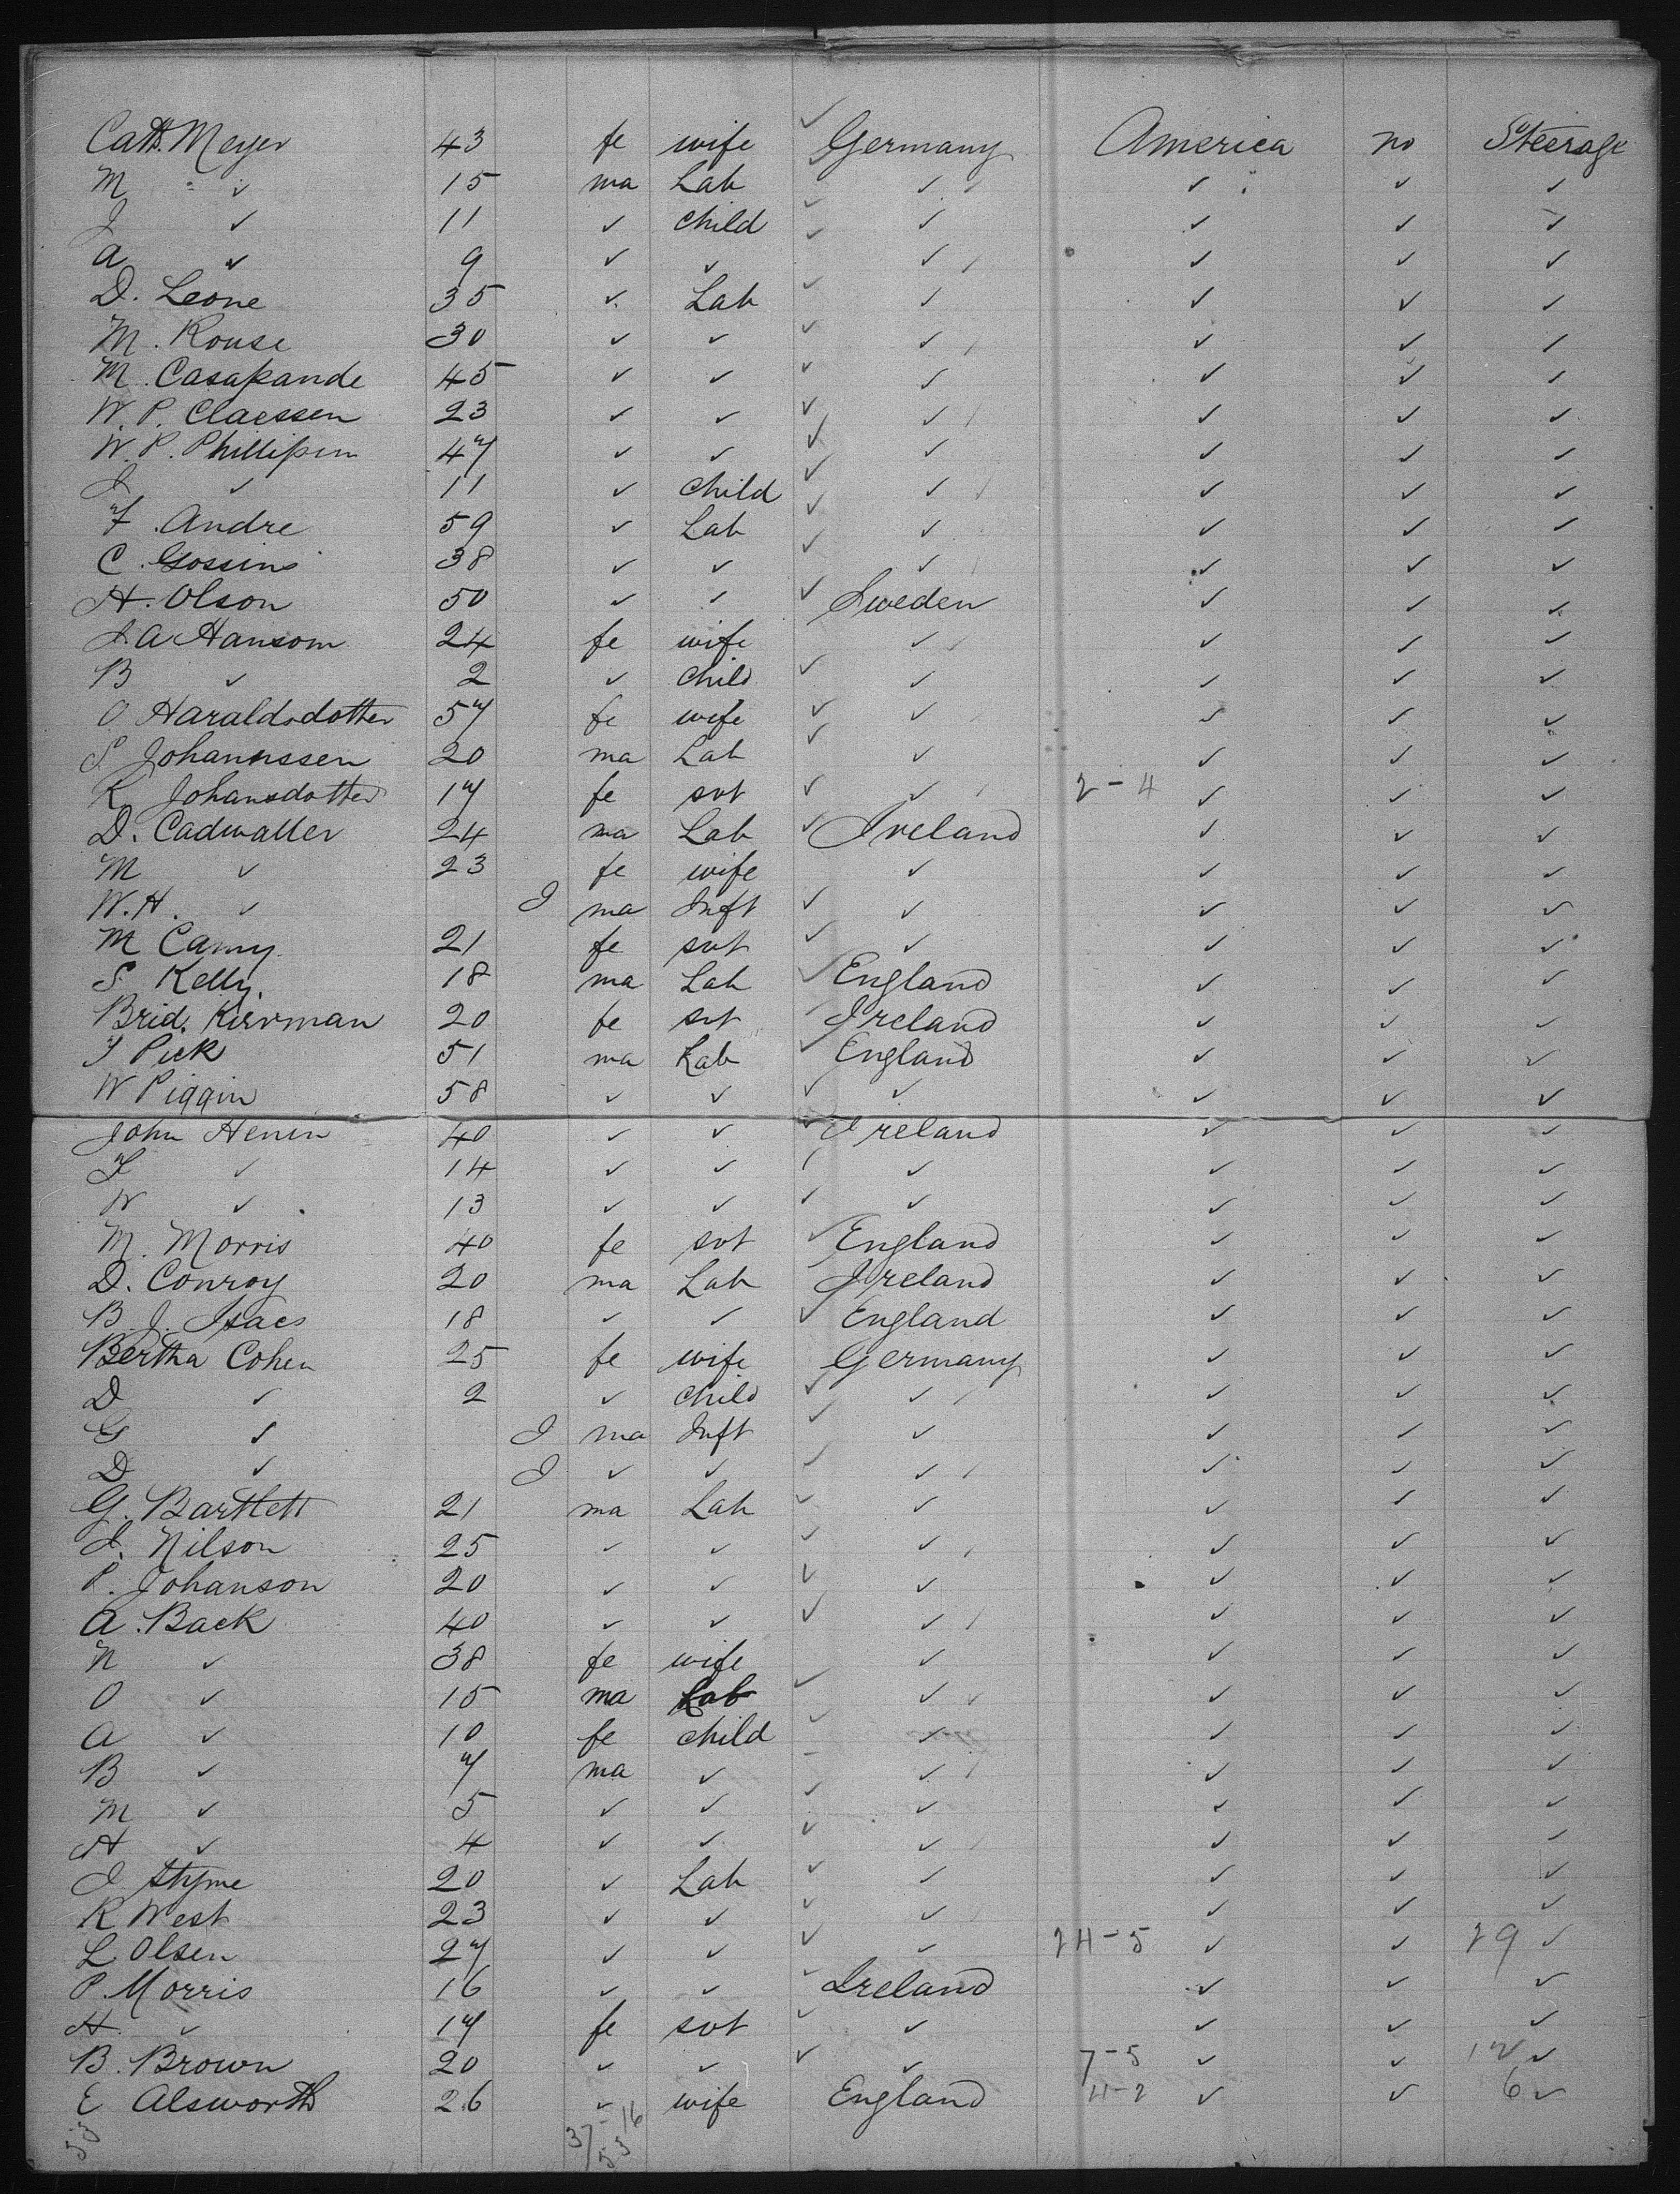 Cath. Meyer 43 fe wife ✓ Germany America no Steerage
M " ✓ 15 ma Lab ✓ ✓ ✓ ✓ ✓
J ✓ 11 ✓ child ✓ ✓ ✓ ✓ ✓
A ✓ 9 ✓ ✓ ✓ ✓ ✓ ✓ ✓
D. Leone 35 ✓ Lab ✓ ✓ ✓ ✓ ✓
M. Rouse 30 ✓ ✓ ✓ ✓ ✓ ✓ ✓
M. Casapande 45 ✓ ✓ ✓ ✓ ✓ ✓ ✓
W. P. Claessen 23 ✓ ✓ ✓ ✓ ✓ ✓ ✓
W. P. Phillipsen 47 ✓ ✓ ✓ ✓ ✓ ✓ ✓
J ✓ 11 ✓ child ✓ ✓ ✓ ✓ ✓
F. Andre 59 ✓ Lab ✓ ✓ ✓ ✓ ✓
C. Gossins 38 ✓ ✓ ✓ ✓ ✓ ✓ ✓
H. Olson 50 ✓ ✓ ✓ Sweden ✓ ✓ ✓
J. A Hansom 24 fe wife ✓ ✓ ✓ ✓
B ✓ 2 ✓ child ✓ ✓ ✓ ✓ ✓
O Haraldsdotter 57 fe wife ✓ ✓ ✓ ✓ ✓
S. Johannssen 20 ma Lab ✓ ✓ ✓ ✓ ✓
K. Johansdotter 17 fe svt ✓ ✓ 2-4 ✓ ✓ ✓
D. Cadwaller 24 ma Lab ✓ Ireland ✓ ✓ ✓
M ✓ 23 fe wife ✓ ✓ ✓ ✓
W. H. ✓ I ma Inft ✓ ✓ ✓ ✓ ✓
M Camy 21 fe svt ✓ ✓ ✓ ✓ ✓
S. Kelly. 18 ma Lab ✓ England ✓ ✓ ✓
Brid. Kirrman 20 fe svt ✓ Ireland ✓ ✓ ✓
J Pick 51 ma Lab ✓ England ✓ ✓ ✓
W Piggin 58 ✓ ✓ ✓ ✓ ✓ ✓ ✓
John Henin 40 ✓ ✓ ✓ Ireland ✓ ✓ ✓
T ✓ 14 ✓ ✓ ✓ ✓ ✓ ✓ ✓
W ✓ 13 ✓ ✓ ✓ ✓ ✓ ✓ ✓
M. Morris 40 fe svt ✓ England ✓ ✓ ✓
D. Conroy 20 ma Lab ✓ Ireland ✓ ✓ ✓
B. J. Isacs 18 ✓ ✓ ✓ England ✓ ✓ ✓
Bertha Cohen 25 fe wife Germany ✓ ✓ ✓
D ✓ 2 ✓ child ✓ ✓ ✓ ✓ ✓
G ✓ I ma Inft ✓ ✓ ✓ ✓ ✓
D ✓ I ✓ ✓ ✓ ✓ ✓ ✓ ✓
G. Bartlett 21 ma Lab ✓ ✓ ✓ ✓ ✓
J. Nilson 25 ✓ ✓ ✓ ✓ ✓ ✓ ✓
P. Johanson 20 ✓ ✓ ✓ ✓ ✓ ✓ ✓
A. Back 40 ✓ ✓ ✓ ✓ ✓ ✓ ✓
N ✓ 38 fe wife ✓ ✓ ✓ ✓
O ✓ 15 ma Lab ✓ ✓ ✓ ✓ ✓
A ✓ 10 fe child ✓ ✓ ✓ ✓ ✓
B ✓ 7 ma ✓ ✓ ✓ ✓ ✓ ✓
M ✓ 5 ✓ ✓ ✓ ✓ ✓ ✓ ✓
H ✓ 4 ✓ ✓ ✓ ✓ ✓ ✓ ✓
J Styme 20 ✓ Lab ✓ ✓ ✓ ✓ ✓
R West 23 ✓ ✓ ✓ ✓ ✓ ✓ ✓
L Olsen 27 ✓ ✓ ✓ ✓ 24-5 ✓ ✓ 29 ✓
P. Morris 16 ✓ ✓ ✓ Ireland ✓ ✓ ✓
H. ✓ 17 fe svt ✓ ✓ ✓ ✓ ✓
B. Brown 20 ✓ ✓ ✓ ✓ 7-5 ✓ ✓ 12 ✓
E Alsworth 26 ✓ wife England 4-2 ✓ ✓ 6 ✓
53 37-16
53